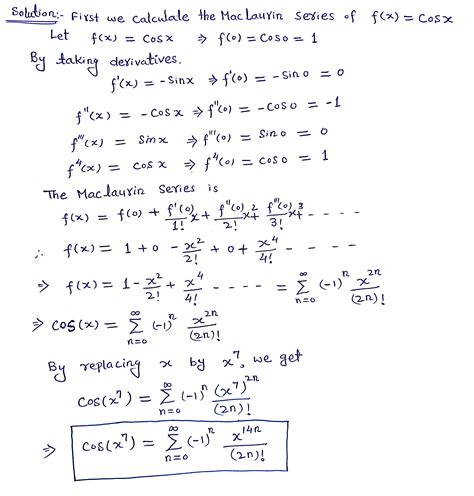 Solution:- First we calculate the Maclaurin series of f(x) = cosx
Let f(x) = cosx ⇒ f(0) = cos0 = 1
By taking derivatives.
f'(x) = -sinx ⇒ f'(0) = -sin0 = 0
f''(x) = -cosx ⇒ f''(0) = -cos0 = -1
f'''(x) = sinx ⇒ f'''(0) = sin0 = 0
f⁴(x) = cosx ⇒ f⁴(0) = cos0 = 1
The Maclaurin series is
f(x) = f(0) + f'(0)/1! x + f''(0)/2! x² + f'''(0)/3! x³ + - - - -
∴ f(x) = 1 + 0 - x²/2! + 0 + x⁴/4! - - - -
⇒ f(x) = 1 - x²/2! + x⁴/4! - - - - = ∑_{n=0}^{∞} (-1)^n x^{2n}/(2n)!
⇒ cos(x) = ∑_{n=0}^{∞} (-1)^n x^{2n}/(2n)!
By replacing x by x⁷, we get
cos(x⁷) = ∑_{n=0}^{∞} (-1)^n (x⁷)^{2n}/(2n)!
⇒ cos(x⁷) = ∑_{n=0}^{∞} (-1)^n x^{14n}/(2n)!